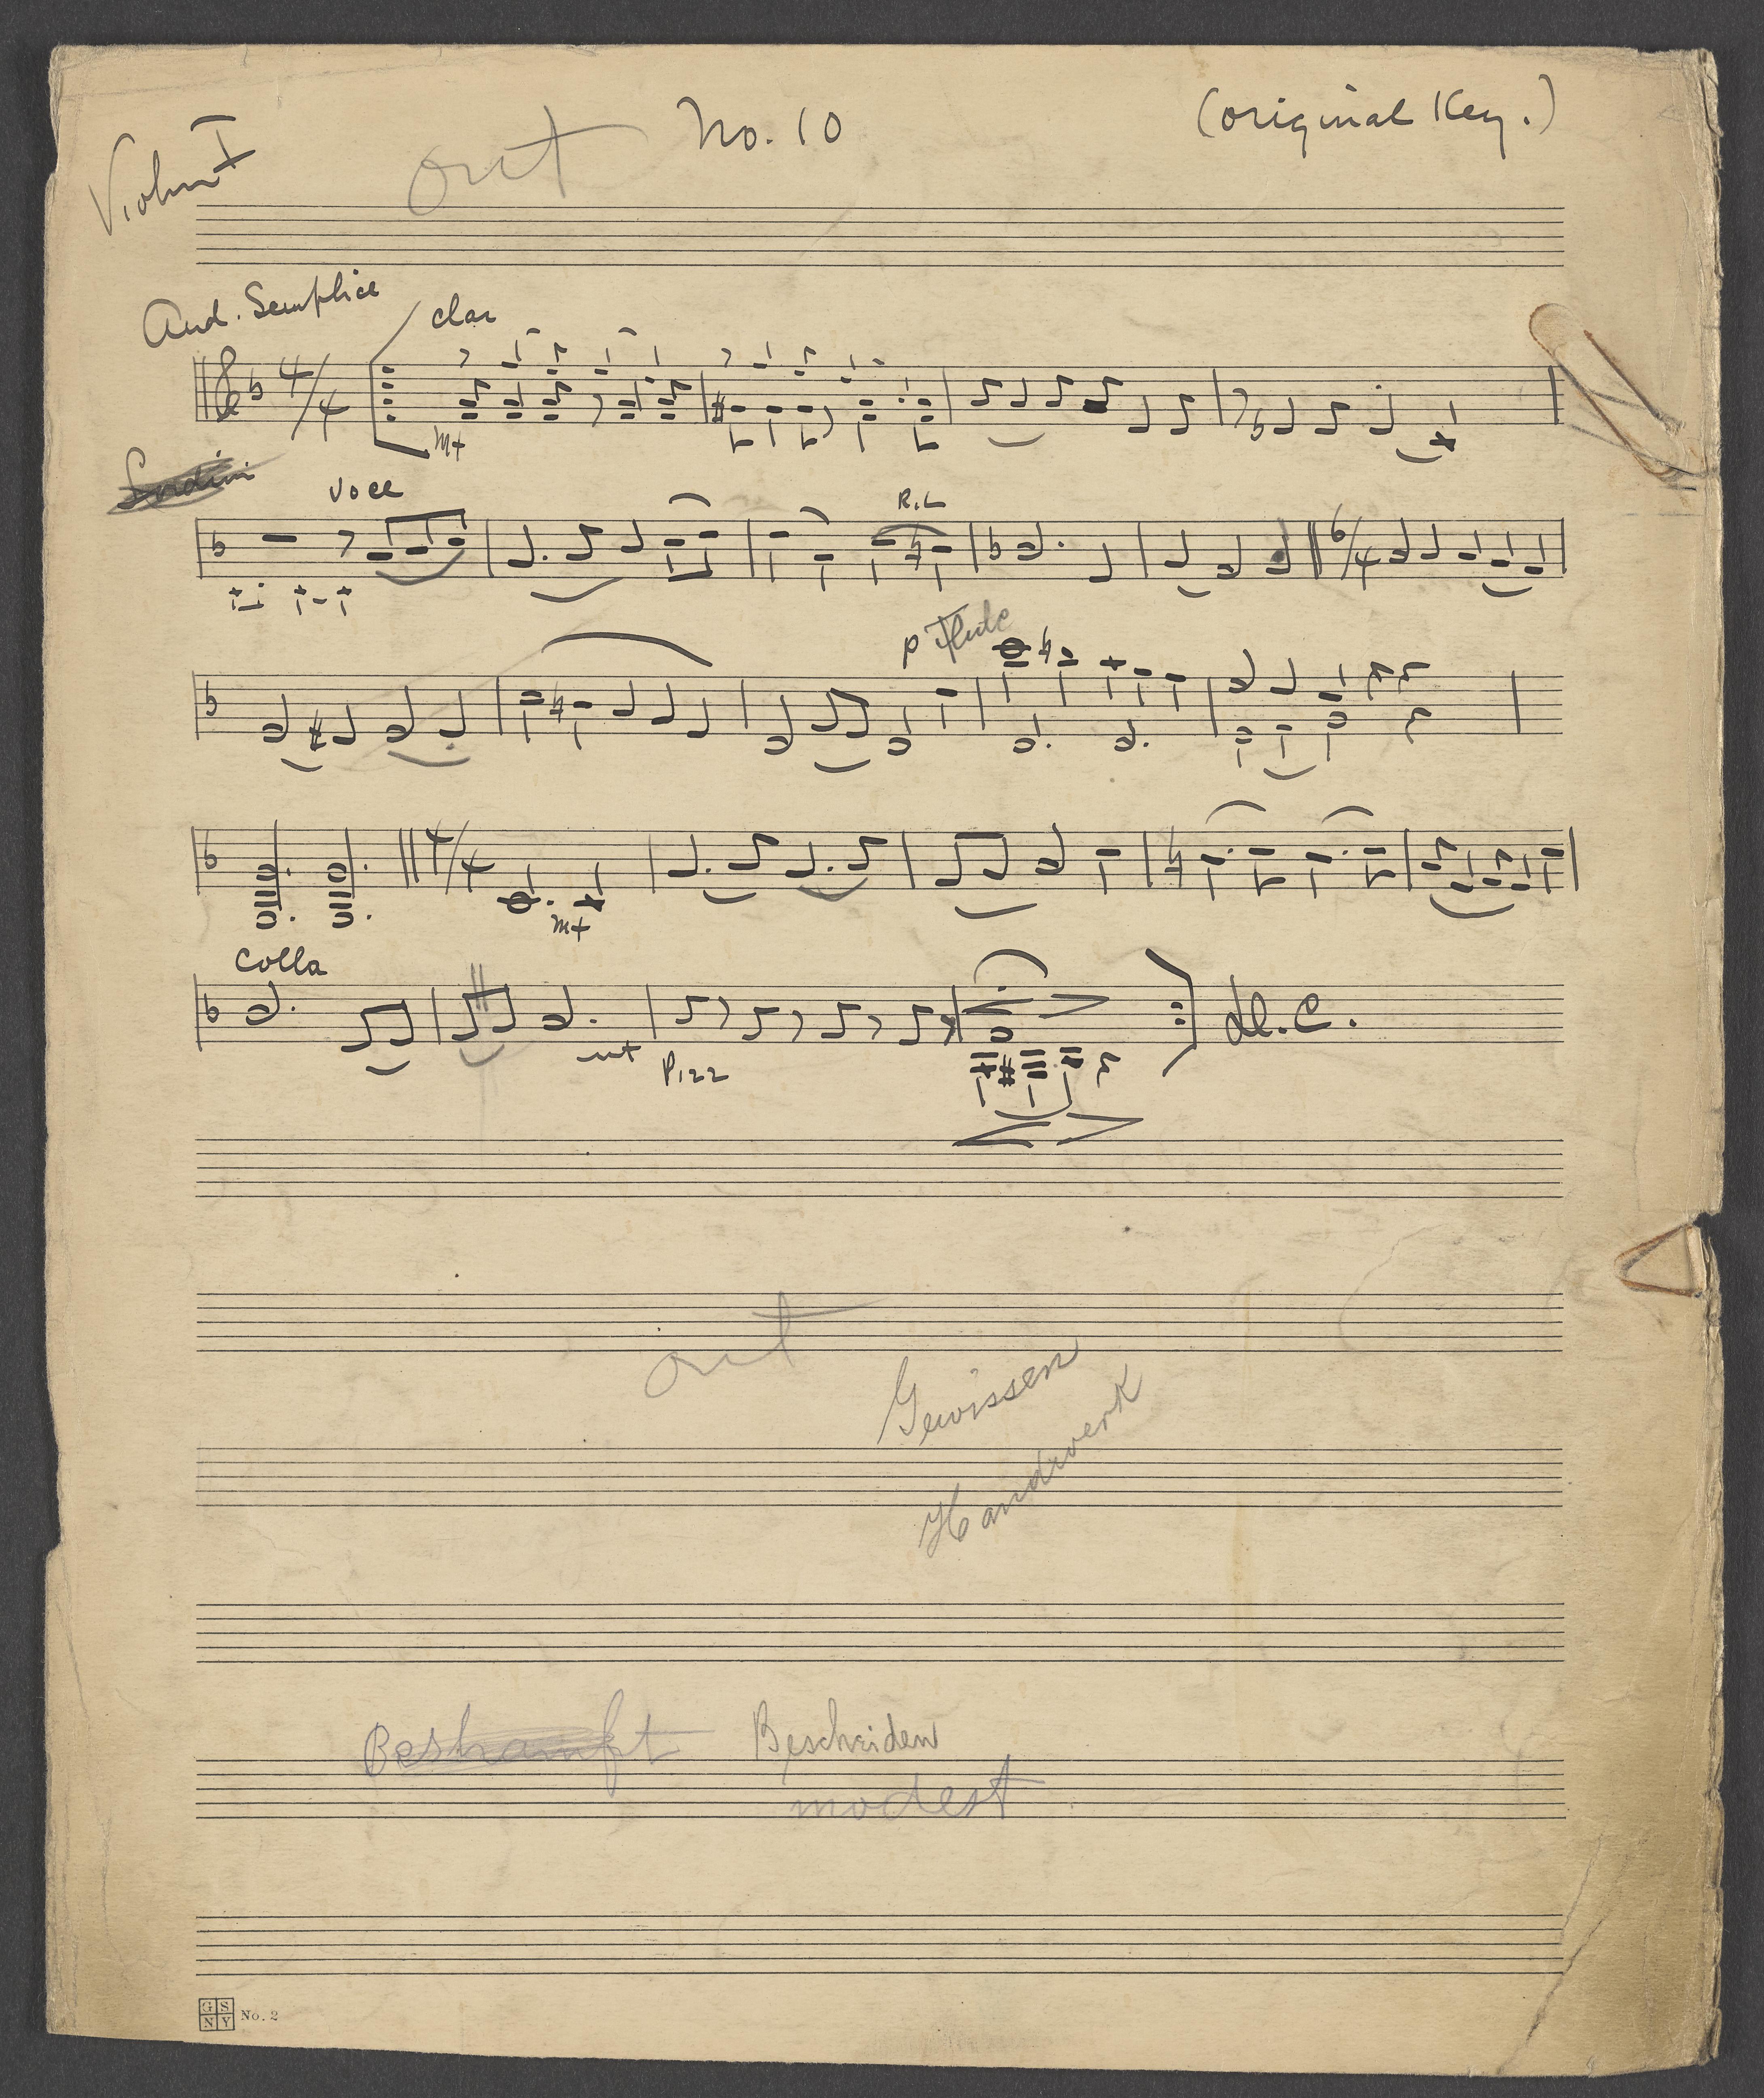 Violin I
out
No. 10
(original Key.)
And. Semplice
clar
4/4
mf
Sordini
voce
R.L
6/4
p Flute
4/4
mf
Colla
mf
Pizz
D.C.
out
Gewissen
Handwerk
Bescheiden
modest
GSNY No. 2